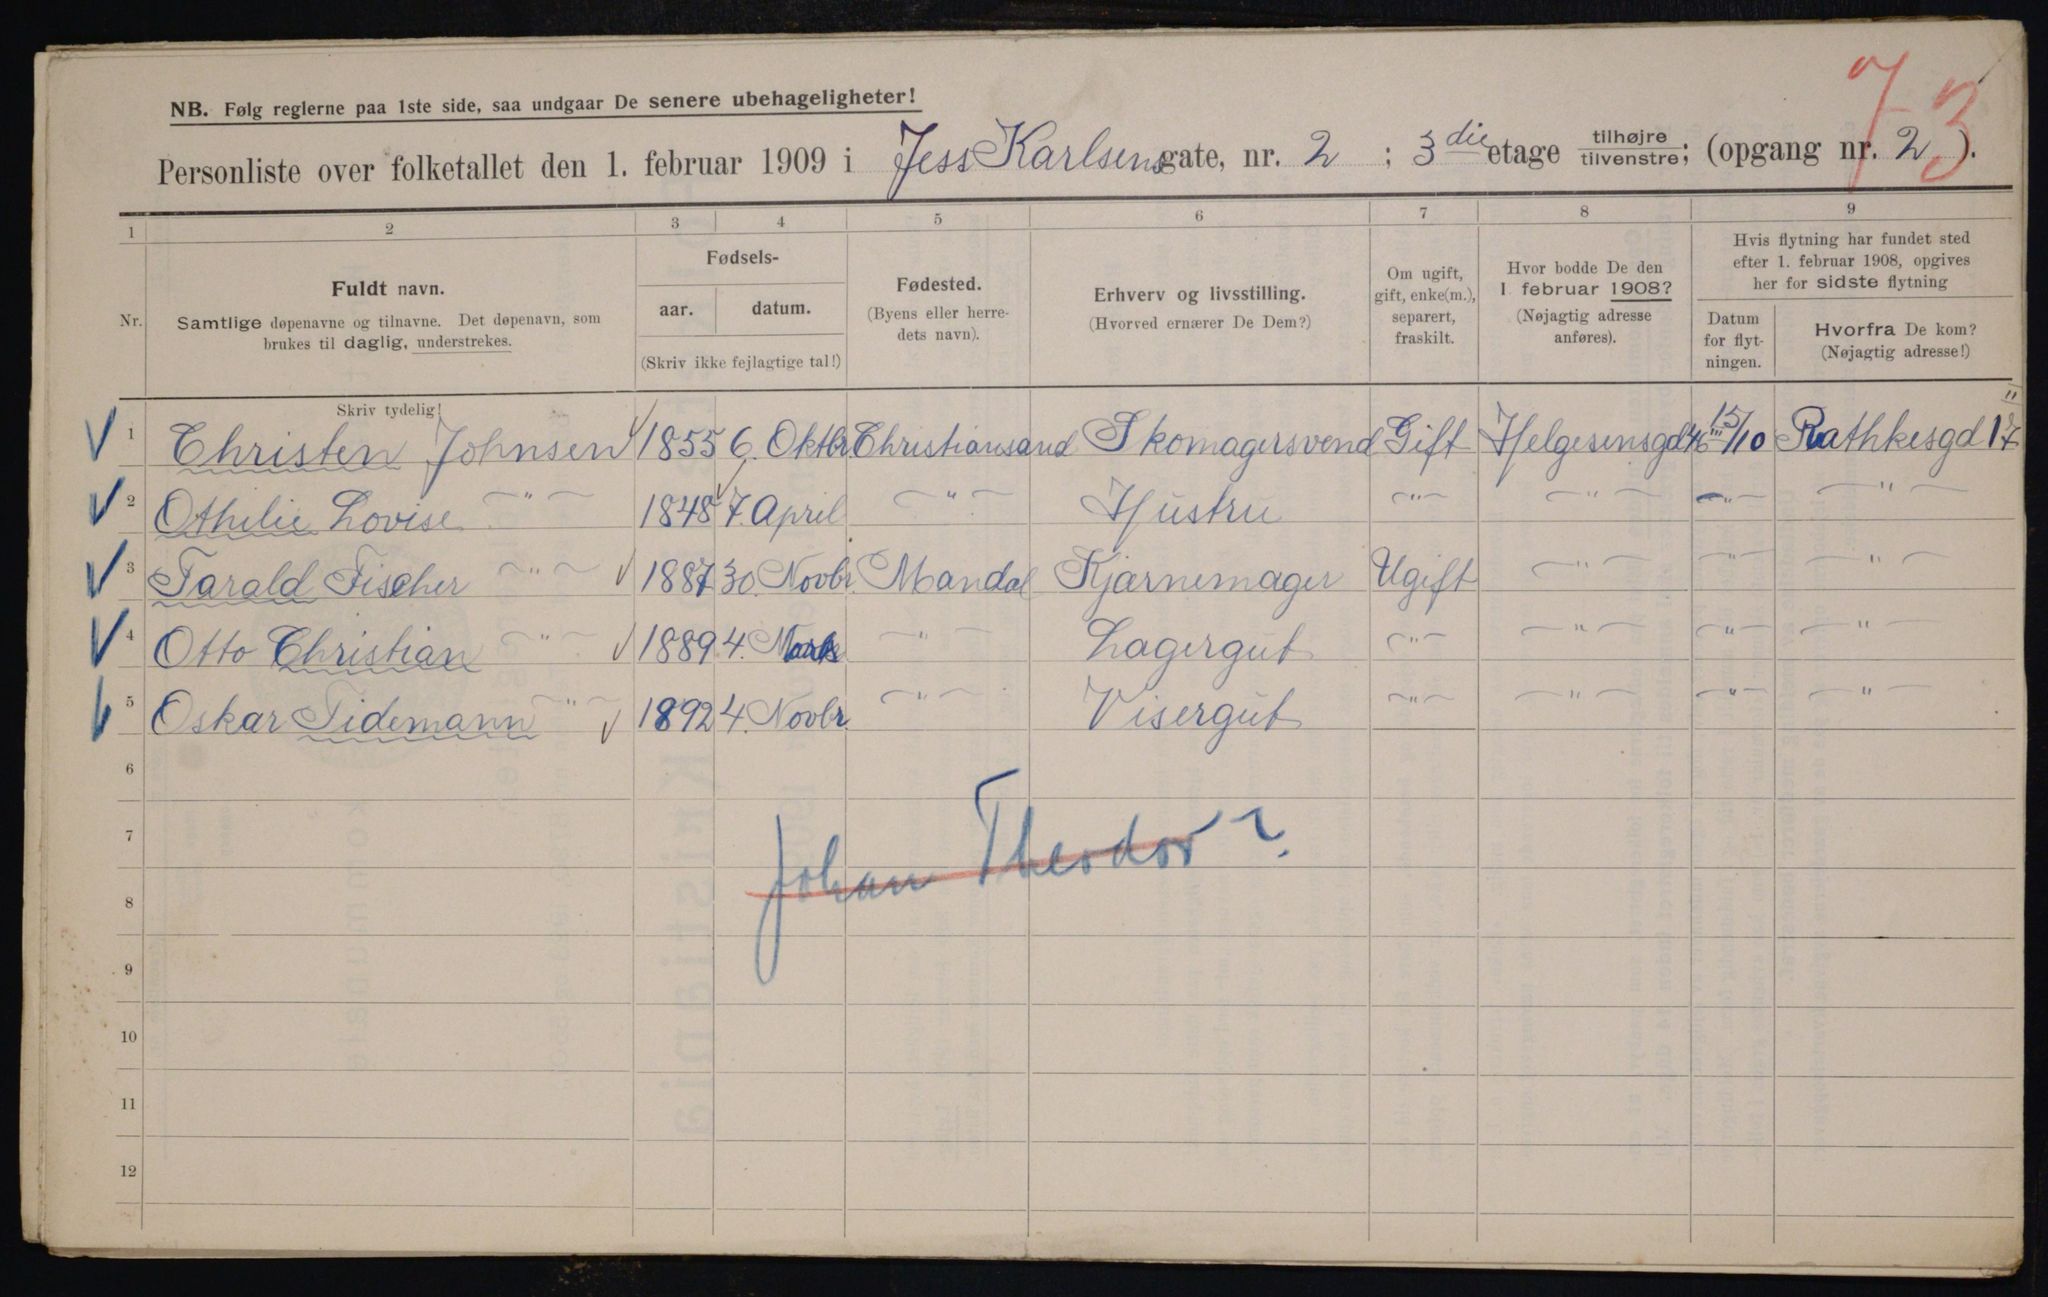 73
NB. Følg reglerne paa 1ste side, saa undgaar De senere ubehageligheter!
Personliste over folketallet den 1. februar 1909 i Jess Karlsens gate, nr. 2 ; 3 die etage tilhøjre tilvenstre; (opgang nr. 2 ).
1 2 3 4 5 6 7 8 9
Nr.
Fuldt navn.
Samtlige døpenavne og tilnavne. Det døpenavn, som
brukes til daglig, understrekes.
Fødsels-
aar. datum.
(Skriv ikke fejlagtige tal!)
Fødested.
(Byens eller herre-
dets navn).
Erhverv og livsstilling.
(Hvorved ernærer De Dem?)
Om ugift,
gift, enke(m.),
separert,
fraskilt.
Hvor bodde De den
1 februar 1908?
(Nøjagtig adresse
anføres).
Hvis flytning har fundet sted
efter 1. februar 1908, opgives
her for sidste flytning
Datum
for flyt-
ningen.
Hvorfra De kom?
(Nøjagtig adresse!)
Skriv tydelig!
1 Christen Johnsen 1855 6. Oktbr Christiansand Skomagersvend Gift Helgesensgd 46 III 15/10 Rathkesgd 17 II
2 Othilie Lovise " 1848 7. April " Hustru " " " "
3 Tarald Fischer " 1887 30. Novbr. Mandal Kjærnemager Ugift " " "
4 Otto Christian " 1889 4. " Lagergut " " " "
5 Oskar Tidemann " 1892 4. Novbr. " Visergut " " " "
6
7
Johan Theodor ?
8
9
10
11
12